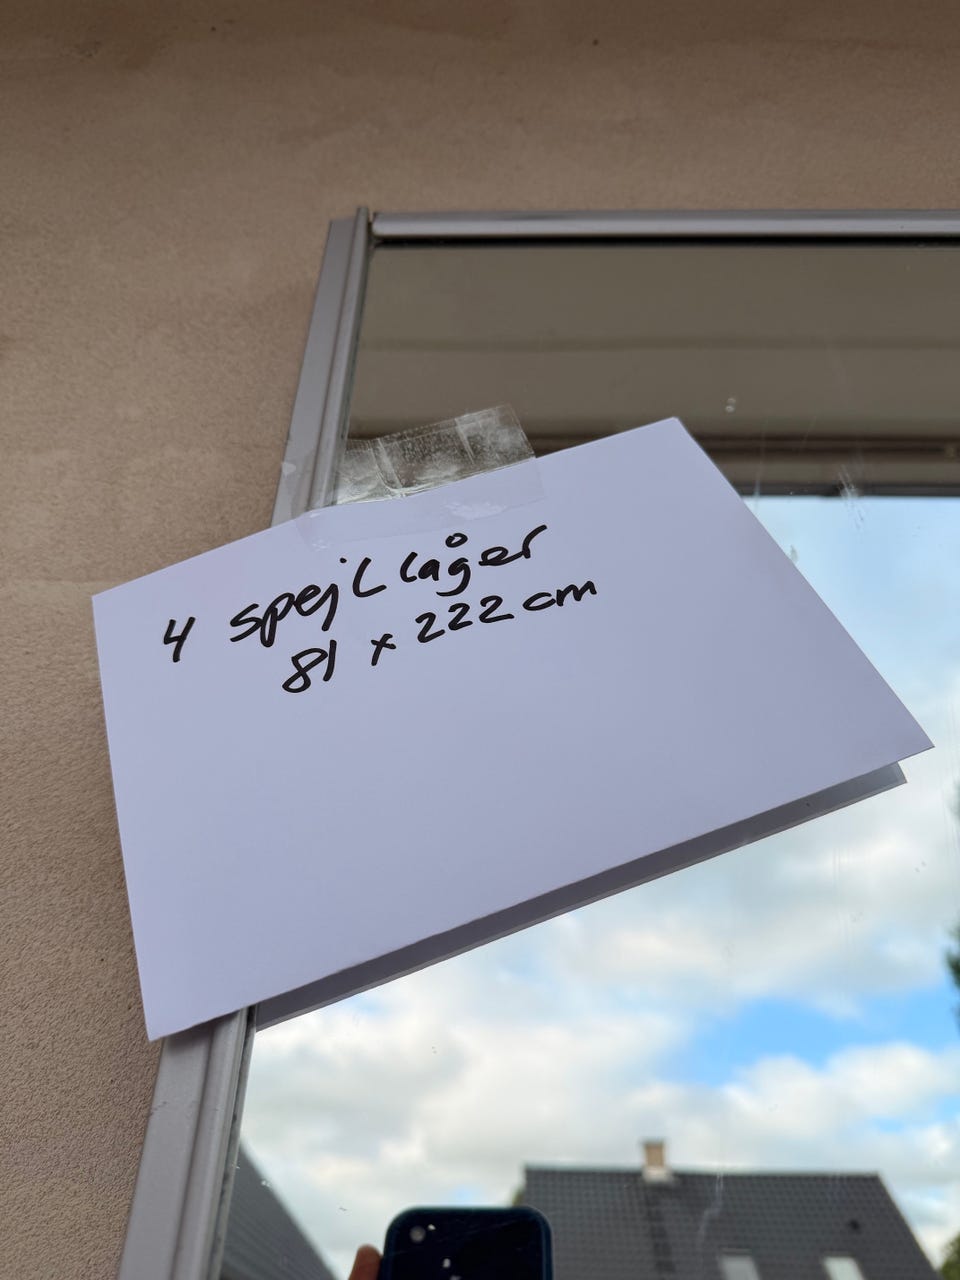 4 spejl låger
81 x 222 cm